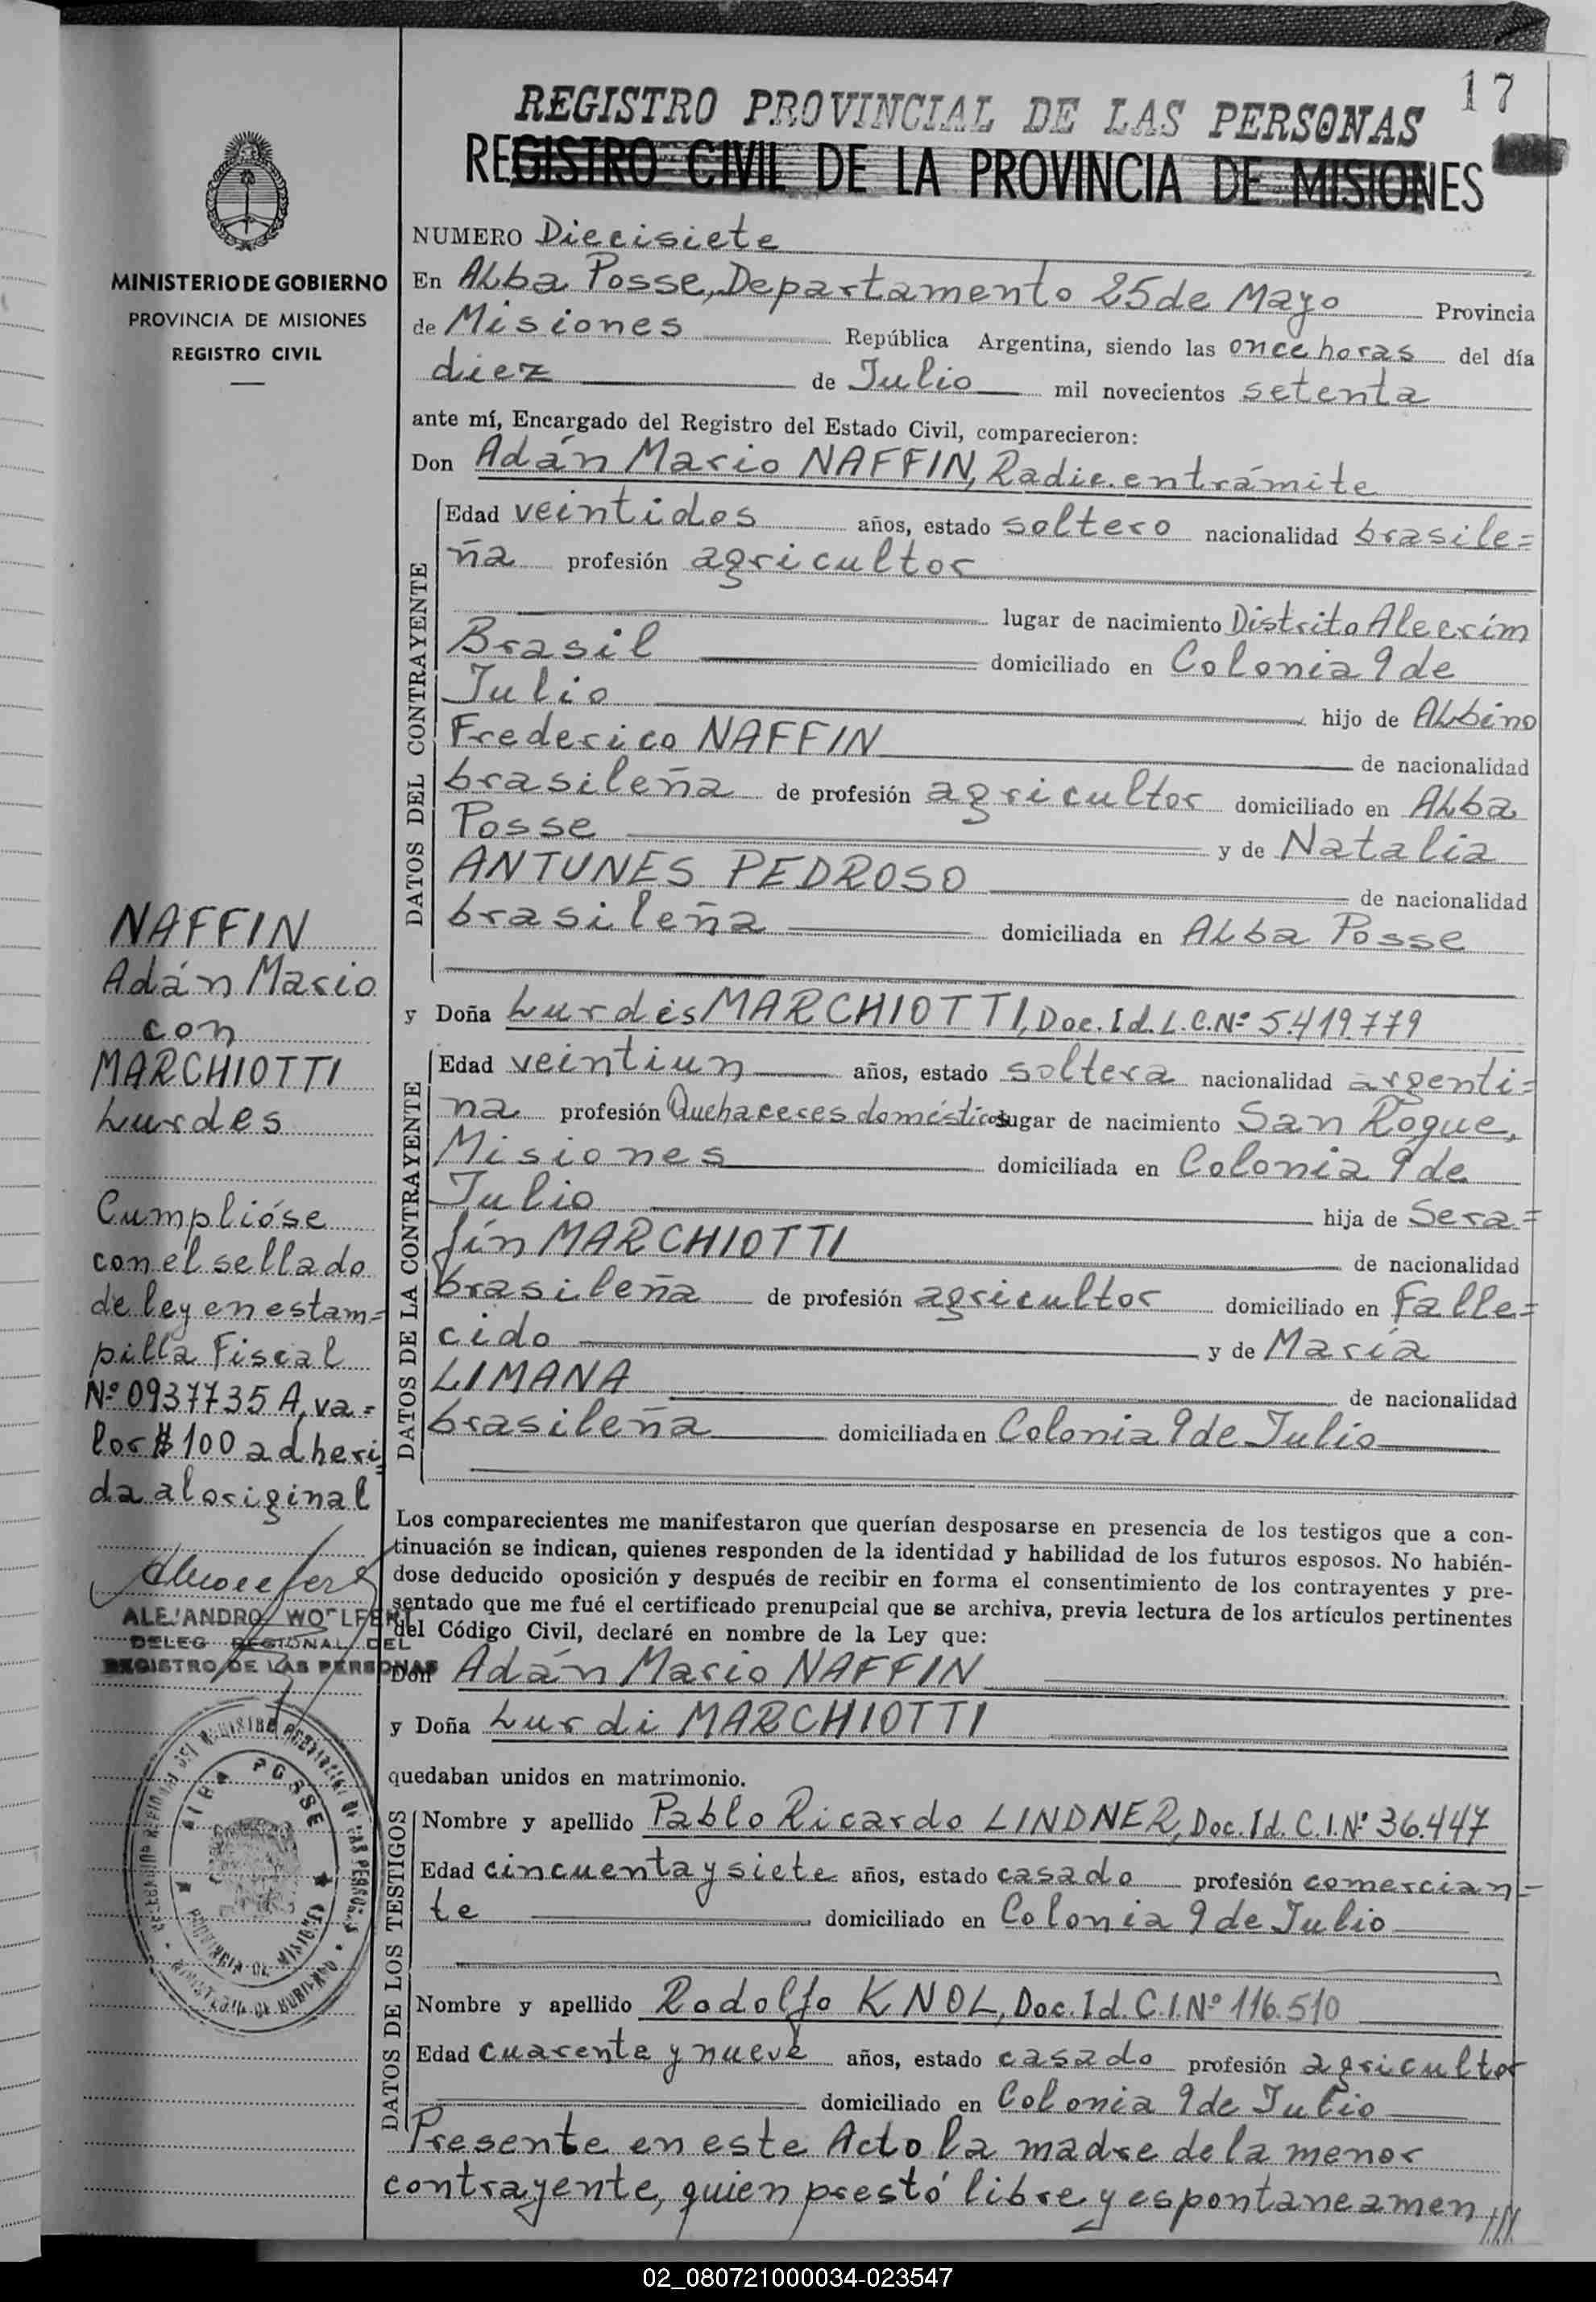 17
REGISTRO PROVINCIAL DE LAS PERSONAS
REGISTRO CIVIL DE LA PROVINCIA DE MISIONES
MINISTERIO DE GOBIERNO
PROVINCIA DE MISIONES
REGISTRO CIVIL
NUMERO Diecisiete
En Alba Posse, Departamento 25 de Mayo Provincia
de Misiones República Argentina, siendo las once horas del día
diez de Julio mil novecientos setenta
ante mí, Encargado del Registro del Estado Civil, comparecieron:
Don Adán Mario NAFFIN, Radic. en trámite
DATOS DEL CONTRAYENTE
Edad veintidos años, estado soltero nacionalidad brasile=
ña profesión agricultor
lugar de nacimiento Distrito Alecrim
Brasil domiciliado en Colonia 9 de
Julio hijo de Albino
Frederico NAFFIN de nacionalidad
brasileña de profesión agricultor domiciliado en Alba
Posse y de Natalia
ANTUNES PEDROSO de nacionalidad
brasileña domiciliada en Alba Posse
y Doña Lurdes MARCHIOTTI, Doc. Id. L.C. Nº 5.419.779
DATOS DE LA CONTRAYENTE
Edad veintiun años, estado soltera nacionalidad argenti=
na profesión Quehaceres domésticos lugar de nacimiento San Roque,
Misiones domiciliada en Colonia 9 de
Julio hija de Sera=
fín MARCHIOTTI de nacionalidad
brasileña de profesión agricultor domiciliado en Falle=
cido y de María
LIMANA de nacionalidad
brasileña domiciliada en Colonia 9 de Julio
Los comparecientes me manifestaron que querían desposarse en presencia de los testigos que a con-
tinuación se indican, quienes responden de la identidad y habilidad de los futuros esposos. No habién-
dose deducido oposición y después de recibir en forma el consentimiento de los contrayentes y pre-
sentado que me fué el certificado prenupcial que se archiva, previa lectura de los artículos pertinentes
del Código Civil, declaré en nombre de la Ley que:
Don Adán Mario NAFFIN
y Doña Lurdi MARCHIOTTI
quedaban unidos en matrimonio.
DATOS DE LOS TESTIGOS
Nombre y apellido Pablo Ricardo LINDNER, Doc. Id. C.I. Nº 36.447
Edad cincuenta y siete años, estado casado profesión comercian=
te domiciliado en Colonia 9 de Julio
Nombre y apellido Rodolfo KNOL, Doc. Id. C.I. Nº 116.510
Edad cuarenta y nueve años, estado casado profesión agricultor
domiciliado en Colonia 9 de Julio
Presente en este Acto la madre de la menor
contrayente, quien prestó libre y espontaneamen///
NAFFIN
Adán Mario
con
MARCHIOTTI
Lurdes
Cumplióse
con el sellado
de ley en estam=
pilla Fiscal
Nº 0937735 A, va=
lor $ 100 adheri=
da al original
ALEJANDRO WOLFERT
DELEG REGIONAL DEL
REGISTRO DE LAS PERSONAS
ALBA POSSE
PROVINCIA DE MISIONES
02_080721000034-023547